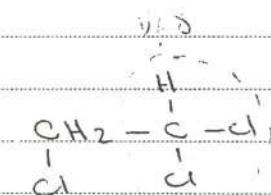 H
CH2 – C – Cl
Cl Cl